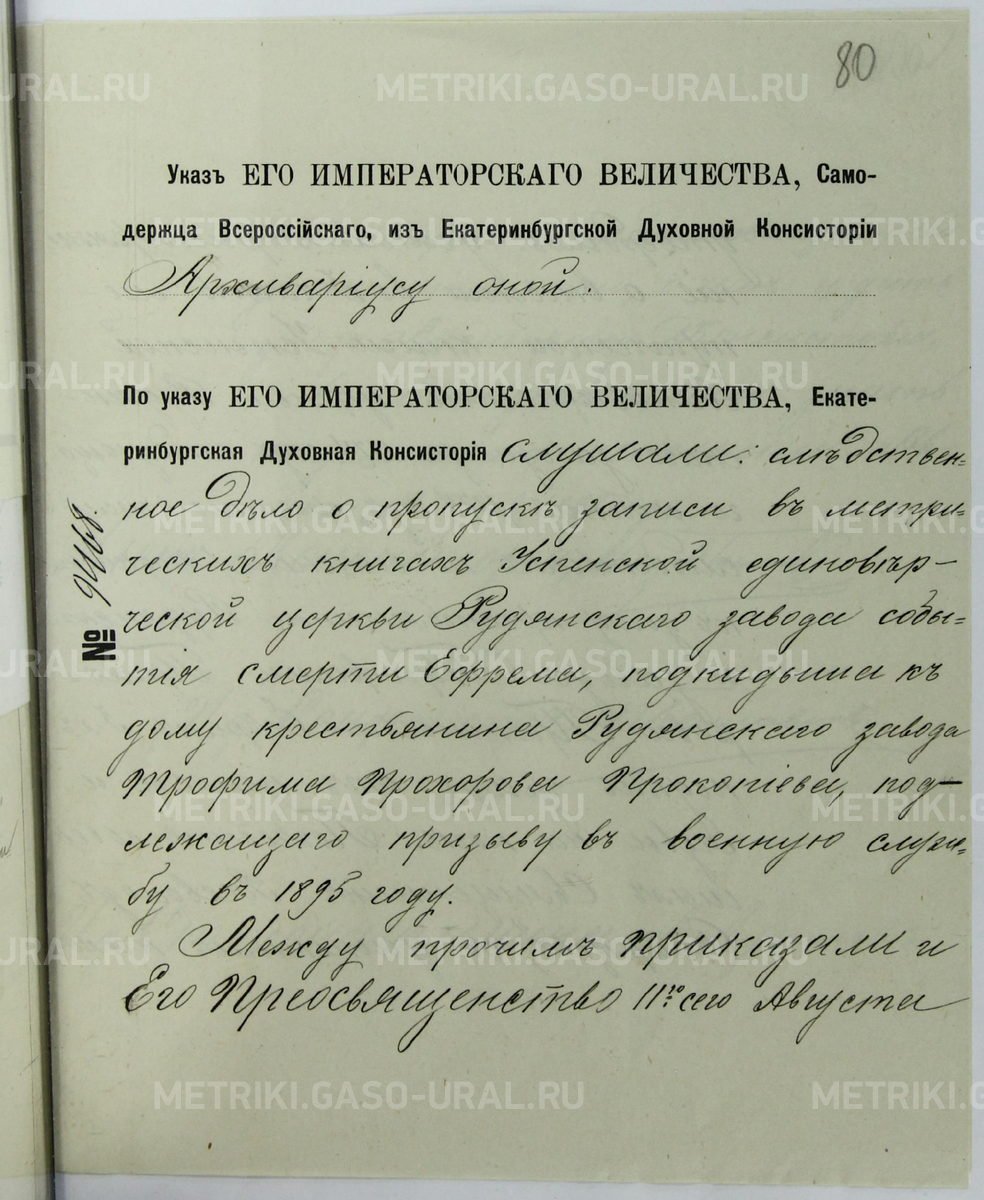 80
Указъ ЕГО ИМПЕРАТОРСКАГО ВЕЛИЧЕСТВА, Само-
держца Всероссійскаго, изъ Екатеринбургской Духовной Консисторіи
Архиваріусу оной.
По указу ЕГО ИМПЕРАТОРСКАГО ВЕЛИЧЕСТВА, Екате-
ринбургская Духовная Консисторія слушали: слѣдствен-
ное дѣло о пропускѣ записи въ метри-
ческихъ книгахъ Успенской единовѣр-
ческой церкви Рудянскаго завода собы-
тія смерти Ефрема, подкидыша къ
дому крестьянина Рудянскаго завода
Трофима Прохорова Прокопіева, под-
лежащаго призыву въ военную служ-
бу въ 1895 году.
Между прочимъ приказали и
Его Преосвященство 11го сего Августа
№ 9468.
METRIKI.GASO-URAL.RU